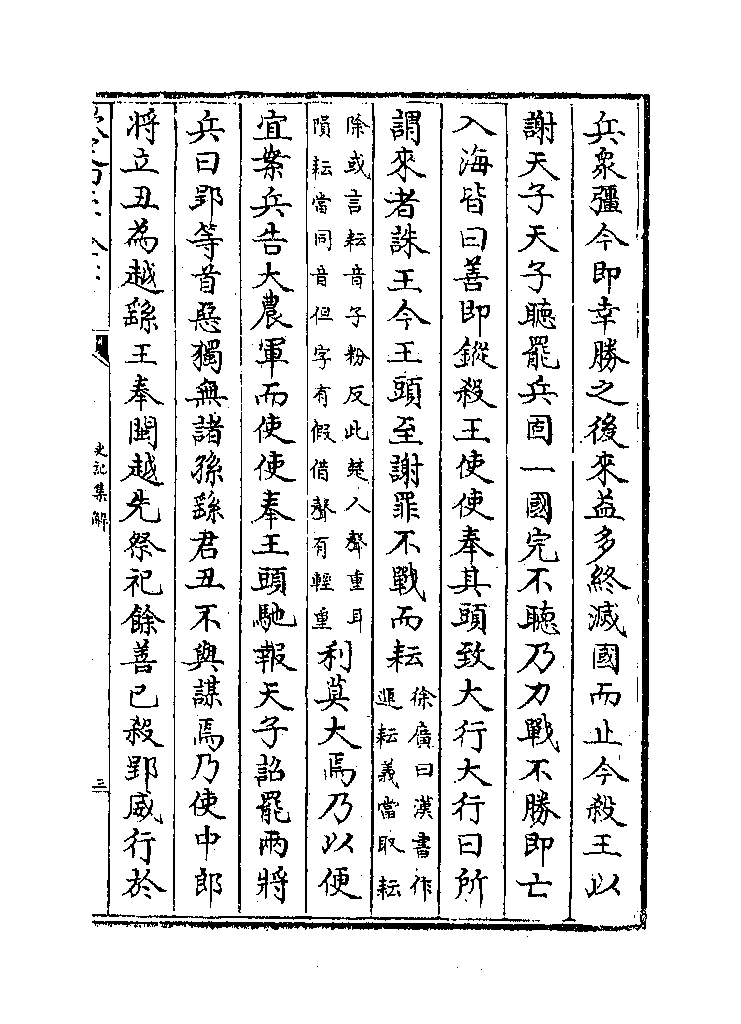 兵衆彊今即幸勝之後來益多終滅國而止今殺王以
謝天子天子聽罷兵固一國完不聽乃力戰不勝即亡
入海皆曰善即鏦殺王使使奉其頭致大行大行曰所
謂來者誅王今王頭至謝罪不戰而耘
徐廣曰漢書作
逫耘義當取耘
除或言耘音子粉反此楚人聲重耳
隕耘當同音但字有假借聲有輕重
利莫大焉乃以便
宜案兵告大農軍而使使奉王頭馳報天子詔罷兩將
兵曰郢等首惡獨無諸孫繇君丑不與謀焉乃使中郎
將立丑為越繇王奉閩越先祭祀餘善已殺郢威行於
史記集解
三